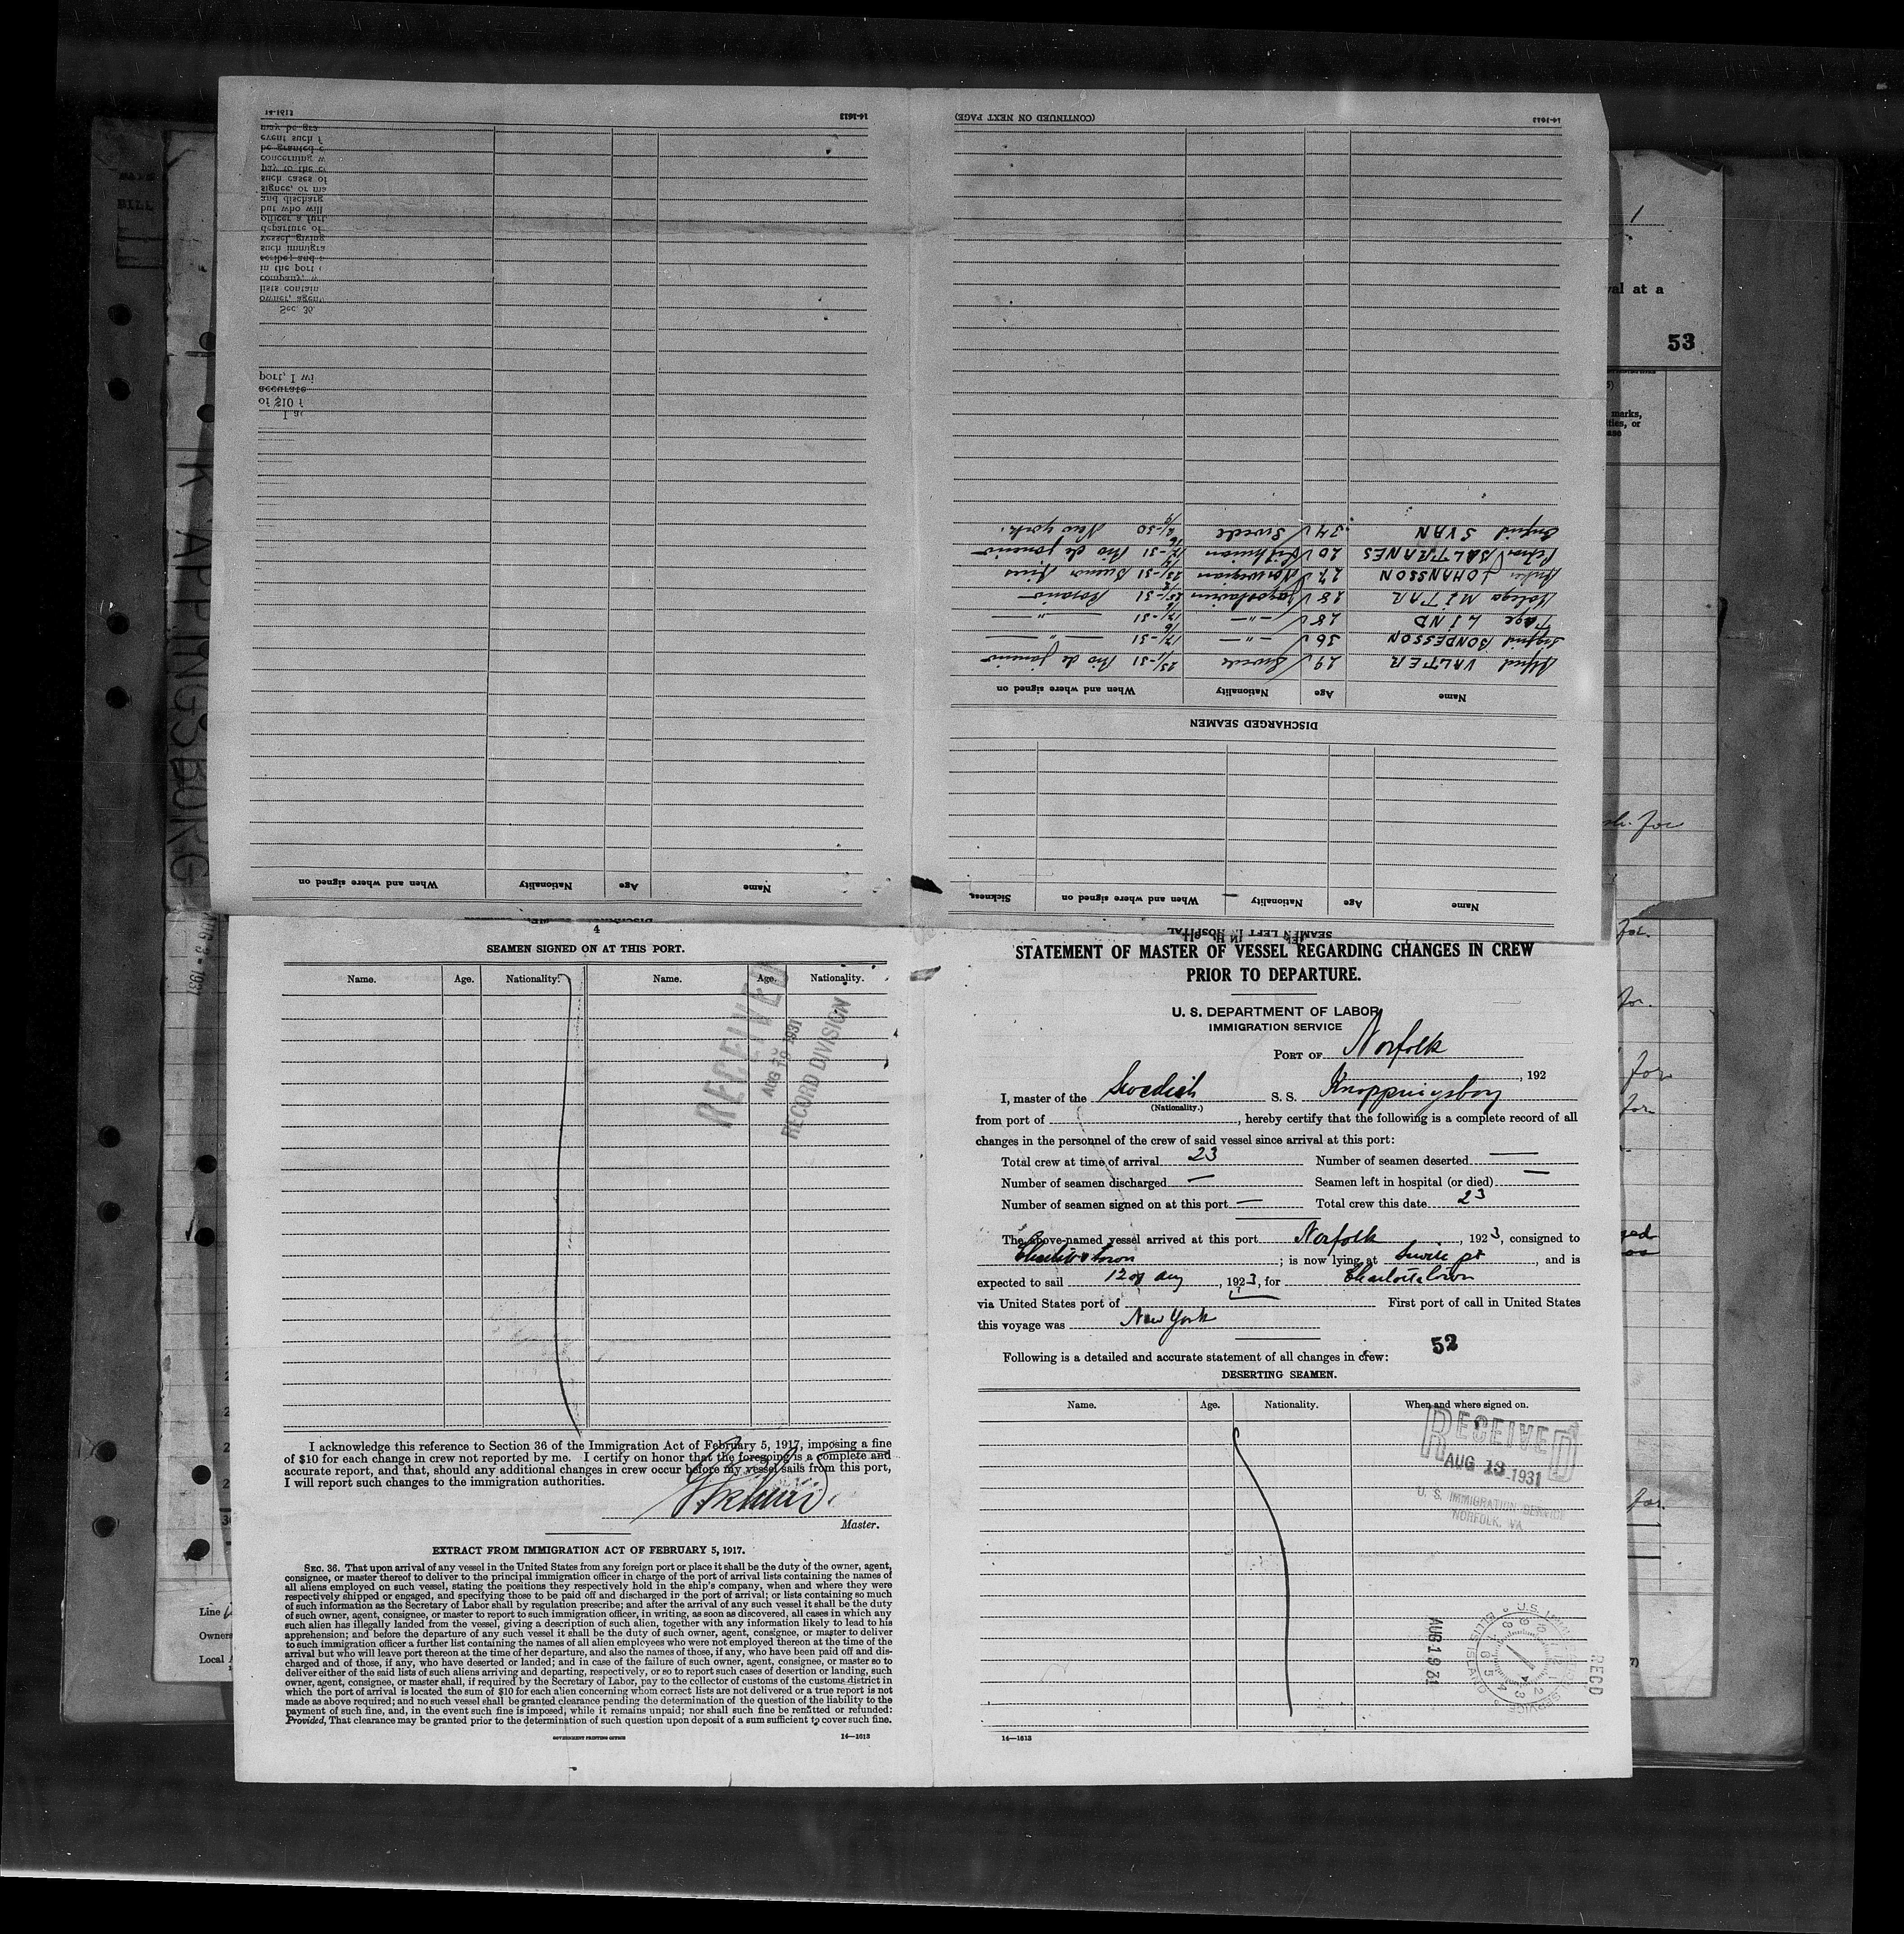 14-1613
may be gra
event such f
be granted c
concerning w
pay to the c
such cases of
signee, or ma
and discharg
but who will
officer a furt
departure of
vessel, giving
such immigra
scribe; and
in the port
company, w
lists contain
owner, agent
Sec. 36.
port, I wi
accurate
of $10 f
I ac
14-1613
When and where signed on
Nationality
Age
Name
SEAMEN LEFT IN HOSPITAL
Name
Age
Nationality
When and where signed on
Sickness
DISCHARGED SEAMEN
Name
Age
Nationality
When and where signed on
Alfred VALTER 29 Swede 25/1-31 Rio de Janeiro
Sigfrid BONDESSON 36 -"- 17/6-31 -"-
Tage LIND 28 -"- 17/6-31 -"-
MITAR 28 25/ -31 Rosario
JOHANSSON 27 Norwegian 23/ -31 Buenos Aires
BALTRANES 20 17/6-31 Rio de Janeiro
SVAN 34 Swede 4/9-30 New York.
(CONTINUED ON NEXT PAGE)
14-1613
val at a
53
marks,
ities, or
ase
KNAPPINGSBORG
AUG 3 - 1931
for
for.
for.
for
for
for.
Line
Owners
Local
4
SEAMEN SIGNED ON AT THIS PORT.
Name. Age. Nationality. Name. Age. Nationality.
RECEIVED
AUG 19 1931
RECORD DIVISION
I acknowledge this reference to Section 36 of the Immigration Act of February 5, 1917, imposing a fine
of $10 for each change in crew not reported by me. I certify on honor that the foregoing is a complete and
accurate report, and that, should any additional changes in crew occur before my vessel sails from this port,
I will report such changes to the immigration authorities.
Master.
EXTRACT FROM IMMIGRATION ACT OF FEBRUARY 5, 1917.
SEC. 36. That upon arrival of any vessel in the United States from any foreign port or place it shall be the duty of the owner, agent,
consignee, or master thereof to deliver to the principal immigration officer in charge of the port of arrival lists containing the names of
all aliens employed on such vessel, stating the positions they respectively hold in the ship's company, when and where they were
respectively shipped or engaged, and specifying those to be paid off and discharged in the port of arrival; or lists containing so much
of such information as the Secretary of Labor shall by regulation prescribe; and after the arrival of any such vessel it shall be the duty
of such owner, agent, consignee, or master to report to such immigration officer, in writing, as soon as discovered, all cases in which any
such alien has illegally landed from the vessel, giving a description of such alien, together with any information likely to lead to his
apprehension; and before the departure of any such vessel it shall be the duty of such owner, agent, consignee, or master to deliver
to such immigration officer a further list containing the names of all alien employees who were not employed thereon at the time of the
arrival but who will leave port thereon at the time of her departure, and also the names of those, if any, who have been paid off and dis-
charged and of those, if any, who have deserted or landed; and in case of the failure of such owner, agent, consignee, or master so to
deliver either of the said lists of such aliens arriving and departing, respectively, or so to report such cases of desertion or landing, such
owner, agent, consignee, or master shall, if required by the Secretary of Labor, pay to the collector of customs of the customs district in
which the port of arrival is located the sum of $10 for each alien concerning whom correct lists are not delivered or a true report is not
made as above required; and no such vessel shall be granted clearance pending the determination of the question of the liability to the
payment of such fine, and, in the event such fine is imposed, while it remains unpaid; nor shall such fine be remitted or refunded:
Provided, That clearance may be granted prior to the determination of such question upon deposit of a sum sufficient to cover such fine.
GOVERNMENT PRINTING OFFICE
14—1613
STATEMENT OF MASTER OF VESSEL REGARDING CHANGES IN CREW
PRIOR TO DEPARTURE.
U. S. DEPARTMENT OF LABOR
IMMIGRATION SERVICE
PORT OF Norfolk
, 192
I, master of the Swedish S. S. Knoppingsborg
(Nationality.)
from port of , hereby certify that the following is a complete record of all
changes in the personnel of the crew of said vessel since arrival at this port:
Total crew at time of arrival 23 Number of seamen deserted —
Number of seamen discharged — Seamen left in hospital (or died) —
Number of seamen signed on at this port — Total crew this date 23
The above-named vessel arrived at this port Norfolk , 1923, consigned to
; is now lying at , and is
expected to sail 12 of Aug , 1923, for Charlottetown
via United States port of First port of call in United States
this voyage was New York
52
Following is a detailed and accurate statement of all changes in crew:
DESERTING SEAMEN.
Name. Age. Nationality. When and where signed on.
RECEIVED
AUG 13 1931
U. S. IMMIGRATION SERVICE
NORFOLK, VA.
AUG 19 31
RECD
ELLIS ISLAND
14—1613